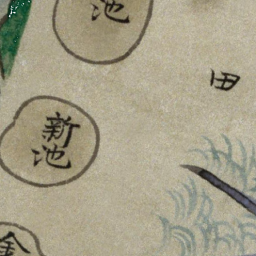 池
田
新池
金